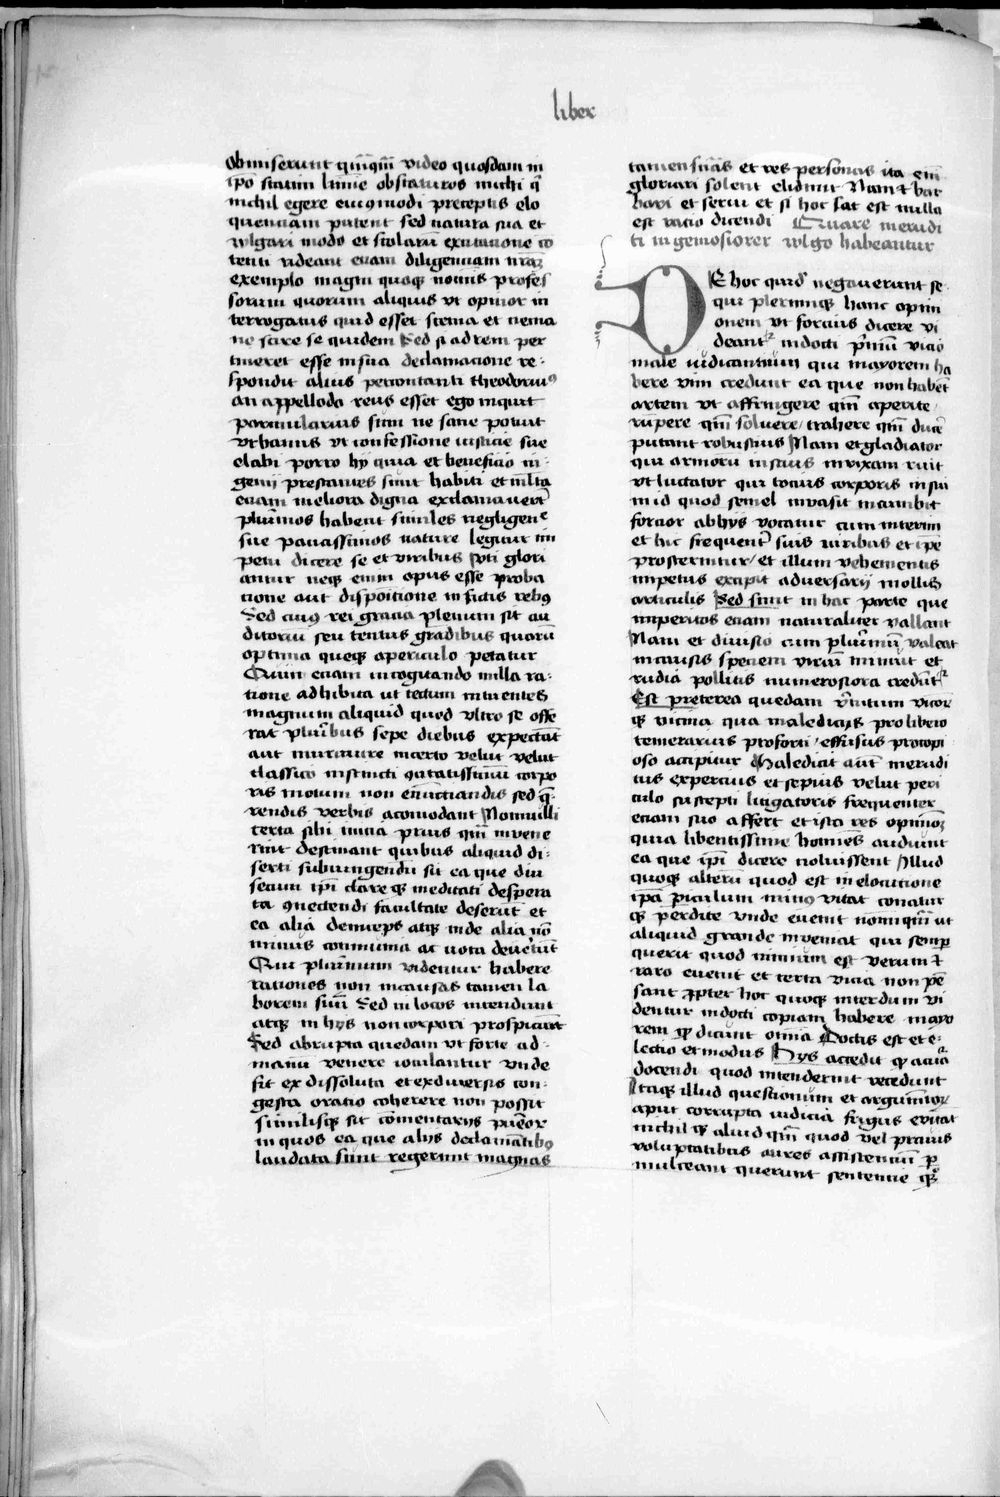 liber
obmiserunt qm̄qm̄ video quosdam in
ip̄o statim limīe obstaturos michi q̄
nichil egere euiꝰmodi preceptis elo
quentiam putent sed natura sua et
wlgari modo et scolarū exercitatione cō
tenti rideant etiam diligentiam nr̄aꝫ
exemplo magni quoqꝫ nomīs profes
sorum quorum aliquis vt opinor in
terrogatus quid esset scema et noema
ne scire se quidem Sed si ad rem per
tineret esse in sua declamatione re-
spondit alius percontanti theodoriuꝰ
an appellodo reus esset ego inquit
parmularius sum ne sane potuit
vrbanius vt confessione inscicie sue
elabi porro hÿ quia et beneficio in-
genii prestantes sunt habiti et multa
etiam meliora digna exclamauerūt
plurīmos habent similes negligentie
sue paucissimos nature Iegitur im
petu dicere se et viribus vti glori
antur neqꝫ enim opus esse proba
tione aut dispōitione in fictis rebꝰ
Sed cuiꝰ rei gracia plenum sit au
ditoriū seu tentus gradibus quarū
optima queqꝫ apericulo petatur
Quin etiam in cogitando nulla ra-
tione adhibita ut tectum intuentes
magnum aliquid quod vltro se offe
rat pluribus sepe diebus expectāt
aut murmure incerto velut velut
classico instincti ꝯcitatissimū corpo
ris motum non enūctiandis sed q̄-
rendis verbis acomodant Nonnulli
certa sibi inicia prius qm̄ inuene
rint destinant quibus aliquid di-
serti subiungendū sit ea que diu
secum ip̄i clare qꝫ meditati despera
ta ꝯnectendi facultate deserūt et
ea alia deinceps atqꝫ inde alia nō
minus communia ac nota deuertūt
Qui plurimum videntur habere
rationes non in causas tamen la
borem suū Sed in locos intendunt
atqꝫ in hijs non corpori prospiciūt
Sed abrupta quedam vt forte ad-
manū venere iaculantur vnde
fit ex dissoluta et ex diuersis con-
gesta oratio coherere non possit
similisqꝫ sit cōmentarijs pueroꝝ
in quos ea que alijs declamātibꝰ
laudata sunt regerunt magnas
tamen sn̄ias et res personas ita eni
gloriari solent elidunt Nam ⁊ bar
bari et serui et si hoc sat est nulla
est racio dicendi Quare inerudi
ti ingeniosiores wlgo habeantur
DE hoc quid negauerunt se
qui plerumqꝫ hanc opini
onem vt forcius dicere vi
deantʳ indocti prīmū vicio
male iudicantium qui mayorem ha
bere vim credunt ea que non habēt
artem vt affringere qm̄ aperire
rūpere qm̄ soluere/ trahere qm̄ ducē
putant robustius Nam et gladiator
qui armorū inscius in rixam ruit
vt luctator qui tocius corporis in sui
in id quod semel inuasit incumbit
forcior ab hijs vocatur cum interim
et hic frequentr̄ suis viribus et ip̄e
prosternitur/ et illum vehementis
impetus excipit aduersarij mollis
articulis Sed sunt in hac parte que
imperitos etiam naturaliter vallant
Nam et diuisio cum plurimū valeat
in causis speciem viriū minuit et
rudia politis numerosiora credūtʳ
Est preterea quedam virtutum vicior
qꝫ vicinia qua maledicus pro libero
temerarius pro forti/ effusus procopi
oso accipitur Maledicit aūt inerudi
tus expercius et sepius velut peri
culo suscepti litigatoris frequenter
etiam suo affert et ista res opinionē
quia libentissime homīes audiunt
ea que ip̄i dicere noluissent Illud
quoqꝫ alterū quod est in elocutione
ip̄a piculum minꝰ vitat conatur
qꝫ perdite vnde euenit nōnūqm̄ ut
aliquid grande inueniat qui semꝑ
querit quod nimium est verum ⁊
raro euenit et certa vicia non pē
sant ꝓpter hoc quoqꝫ interdum vi
dentur indocti copiam habere mayo
rem qꝫ dicunt omīa Doctis est et e-
lectio et modus Hijs accedit qꝫ a cura
docendi quod intenderint recedunt
Itaqꝫ illud questionum et argumētoꝝ
aput corrupta iudicia frigus euitāt
nichil qꝫ aliud qm̄ quod vel prauis
voluptatibus aures assistentiū ꝑ
mulceant querunt sentencie qꝫ